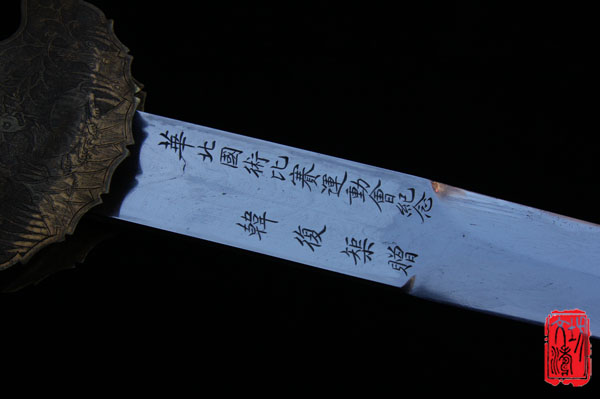 華北國術比賽運動會紀念
韓復榘贈